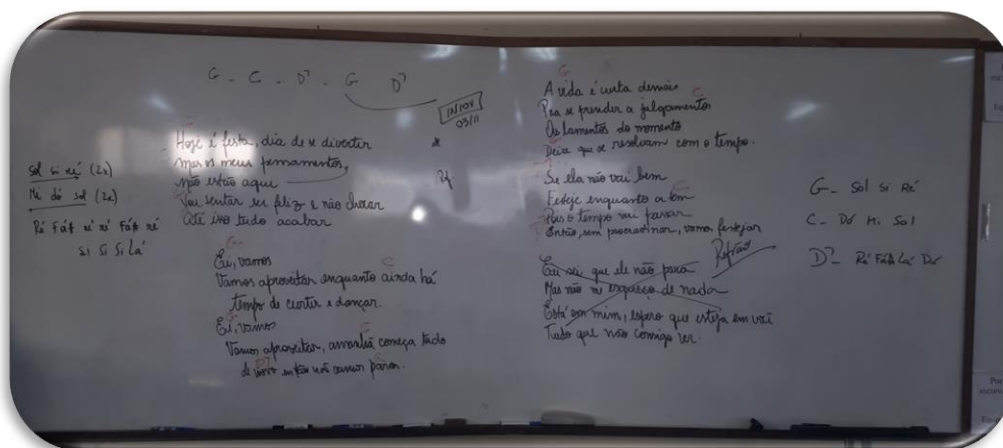 G - C - D7 - G D7
IN/10V
03/11
Sol si ré (2x)
Mi dó sol (2x)
Ré Fá# ré ré Fá# ré
si si si Lá
Hoje é festa, dia de se divertir
Mas os meus pensamentos,
não estão aqui
Vou tentar ser feliz e não chorar
Até isso tudo acabar
G
Ei, vamos
C
Vamos aproveitar enquanto ainda há
tempo de curtir e dançar.
G
Ei, vamos
C
Vamos aproveitar, amanhã começa tudo
de novo então nós vamos parar.
G
A vida é curta demais
C
Pra se prender a julgamentos
Os lamentos do momento
Deixa que se resolvam com o tempo.
Se ela não vai bem
Festeje enquanto a tem
Pois o tempo vai passar
Então, sem procrastinar, vamos festejar
Refrão
Eu sei que ele não para
Mas não me esqueço de nada
Está em mim, espero que esteja em você
Tudo que não consigo ver.
G - Sol Si Ré
C - Dó Mi Sol
D7 - Ré Fá# Lá Dó